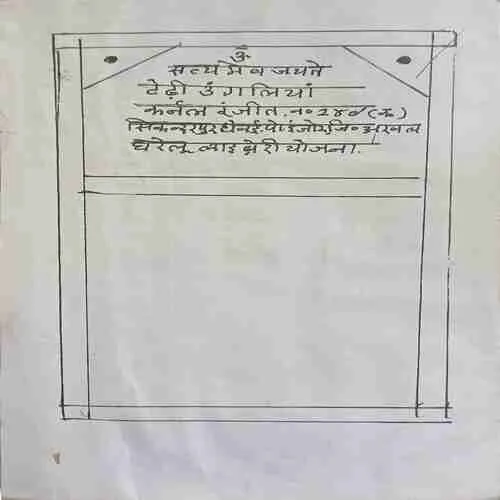 ॐ
सत्यमेव जयते
टेढ़ी उंगलियां
कर्नल रंजीत. न॰ 288 (क)
सिकन्दरपुर पो॰ इंजोर जि॰ अरवल
घरेलू लाइब्रेरी योजना.